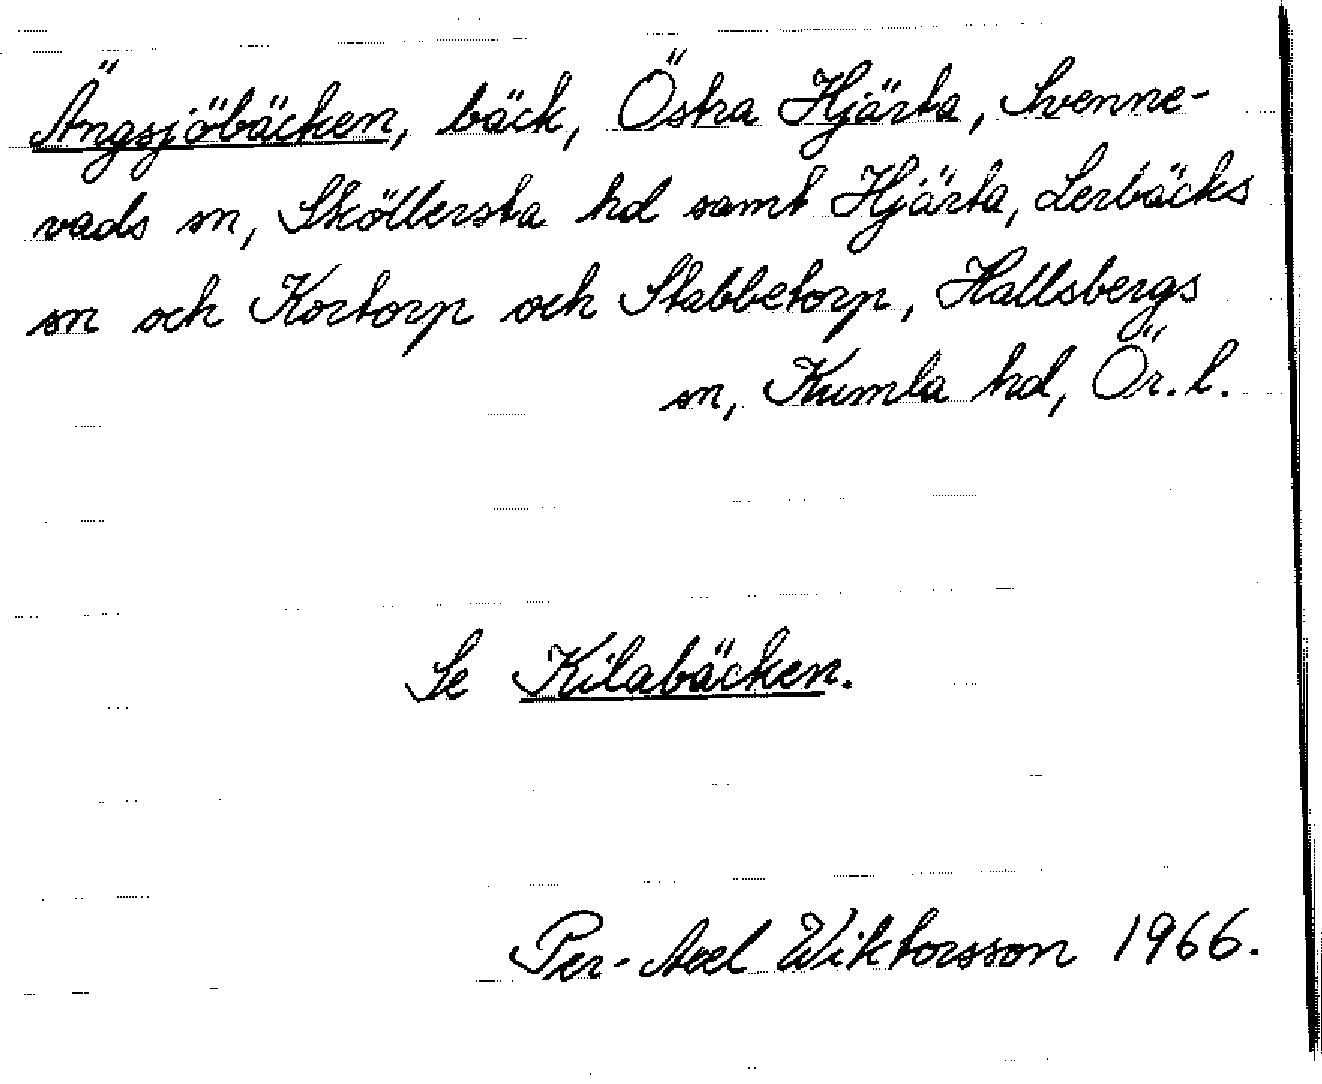 Ängsjöbäcken, bäck, Östra Hjärta, Svenne-
vads sn, Sköllersta hd samt Hjärta, Lerbäcks
sn och Kortorp och Stabbetorp, Hallsbergs
sn, Kumla hd, Ör. l.
Se Kilabäcken.
Per-Axel Wiktorsson 1966.